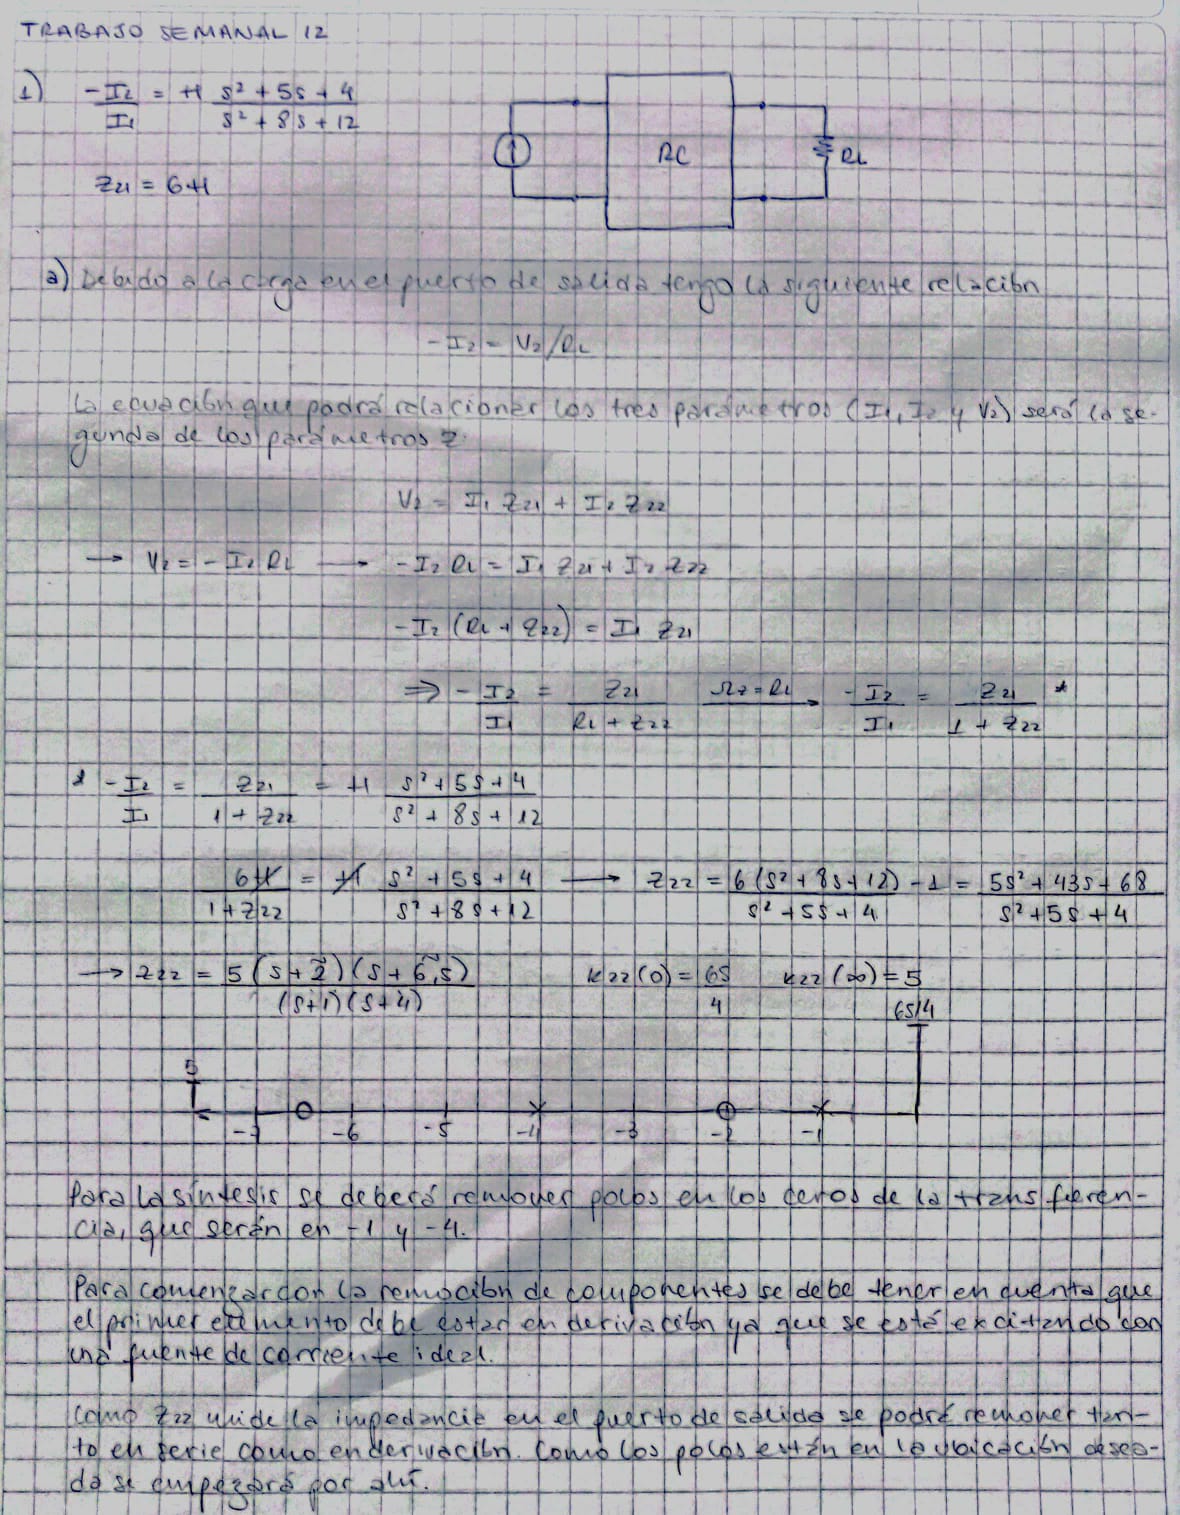 TRABAJO SEMANAL 12
1) -I2/I1 = H (s² + 5s + 4)/(s² + 8s + 12)
RC
RL
Z21 = 6H
a) Debido a la carga en el puerto de salida tengo la siguiente relación
-I2 = V2/RL
La ecuación que podrá relacionar los tres parámetros (I1, I2 y V2) será la se-
gunda de los parámetros Z.
V2 = I1 Z21 + I2 Z22
→ V2 = -I2 RL → -I2 RL = I1 Z21 + I2 Z22
-I2 (RL + Z22) = I1 Z21
⇒ -I2/I1 = Z21/(RL + Z22) Ωz = RL → -I2/I1 = Z21/(1 + Z22) *
* -I2/I1 = Z21/(1 + Z22) = H (s² + 5s + 4)/(s² + 8s + 12)
6H/(1 + Z22) = H (s² + 5s + 4)/(s² + 8s + 12) → Z22 = 6(s² + 8s + 12)/(s² + 5s + 4) - 1 = (5s² + 43s + 68)/(s² + 5s + 4)
→ Z22 = 5 (s + 2̃)(s + 6,5̃)/((s+1)(s+4)) K22(0) = 65/4 K22(∞) = 5
65/4
5
-7 -6 -5 -4 -3 -2 -1
Para la síntesis se deberá remover polos en los ceros de la transferen-
cia, que serán en -1 y -4.
Para comenzar con la remoción de componentes se debe tener en cuenta que
el primer elemento debe estar en derivación ya que se está excitando con
una fuente de corriente ideal.
Como Z22 mide la impedancia en el puerto de salida se podrá remover tan-
to en serie como en derivación. Como los polos están en la ubicación desea-
da se empezará por ahí.